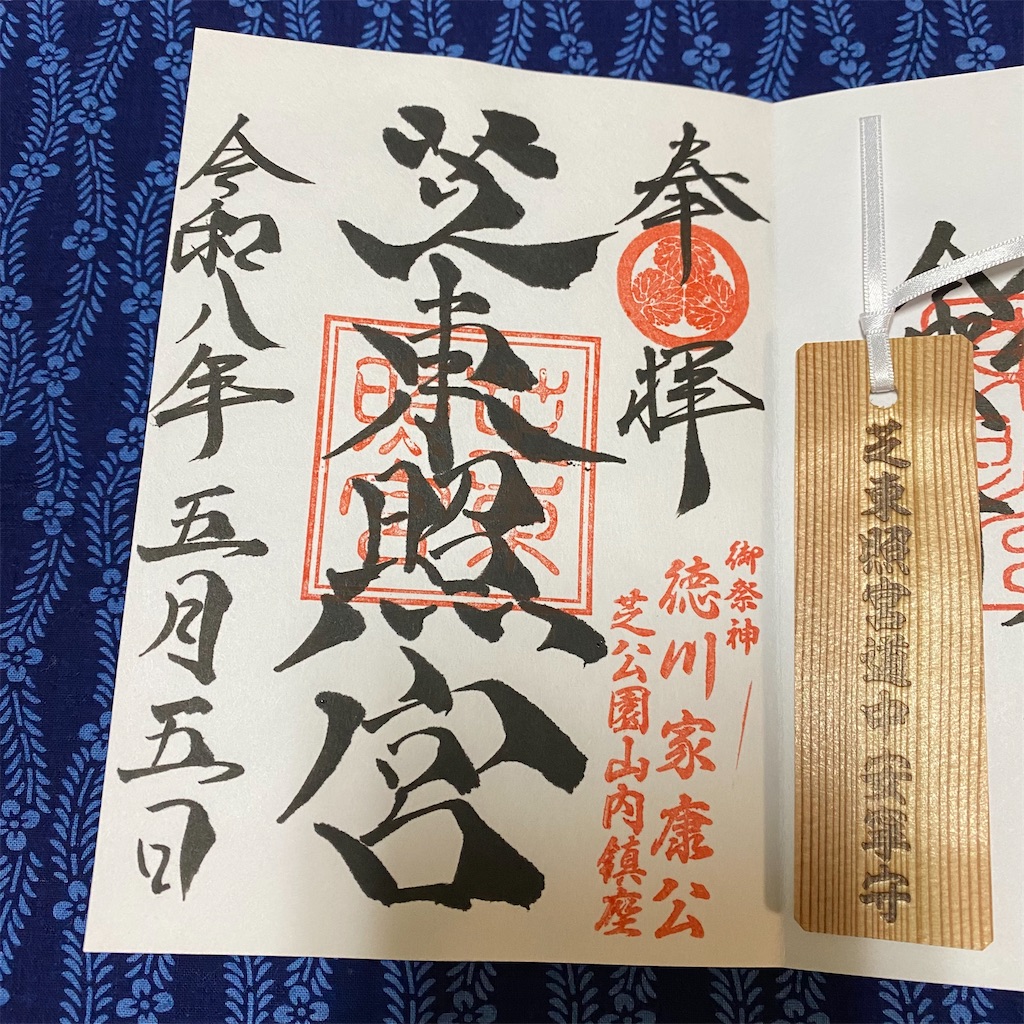 芝東照宮道中安寧守
奉拝
御祭神
徳川家康公
芝公園山内鎮座
芝東照宮
芝東
照宮
令和八年五月五日